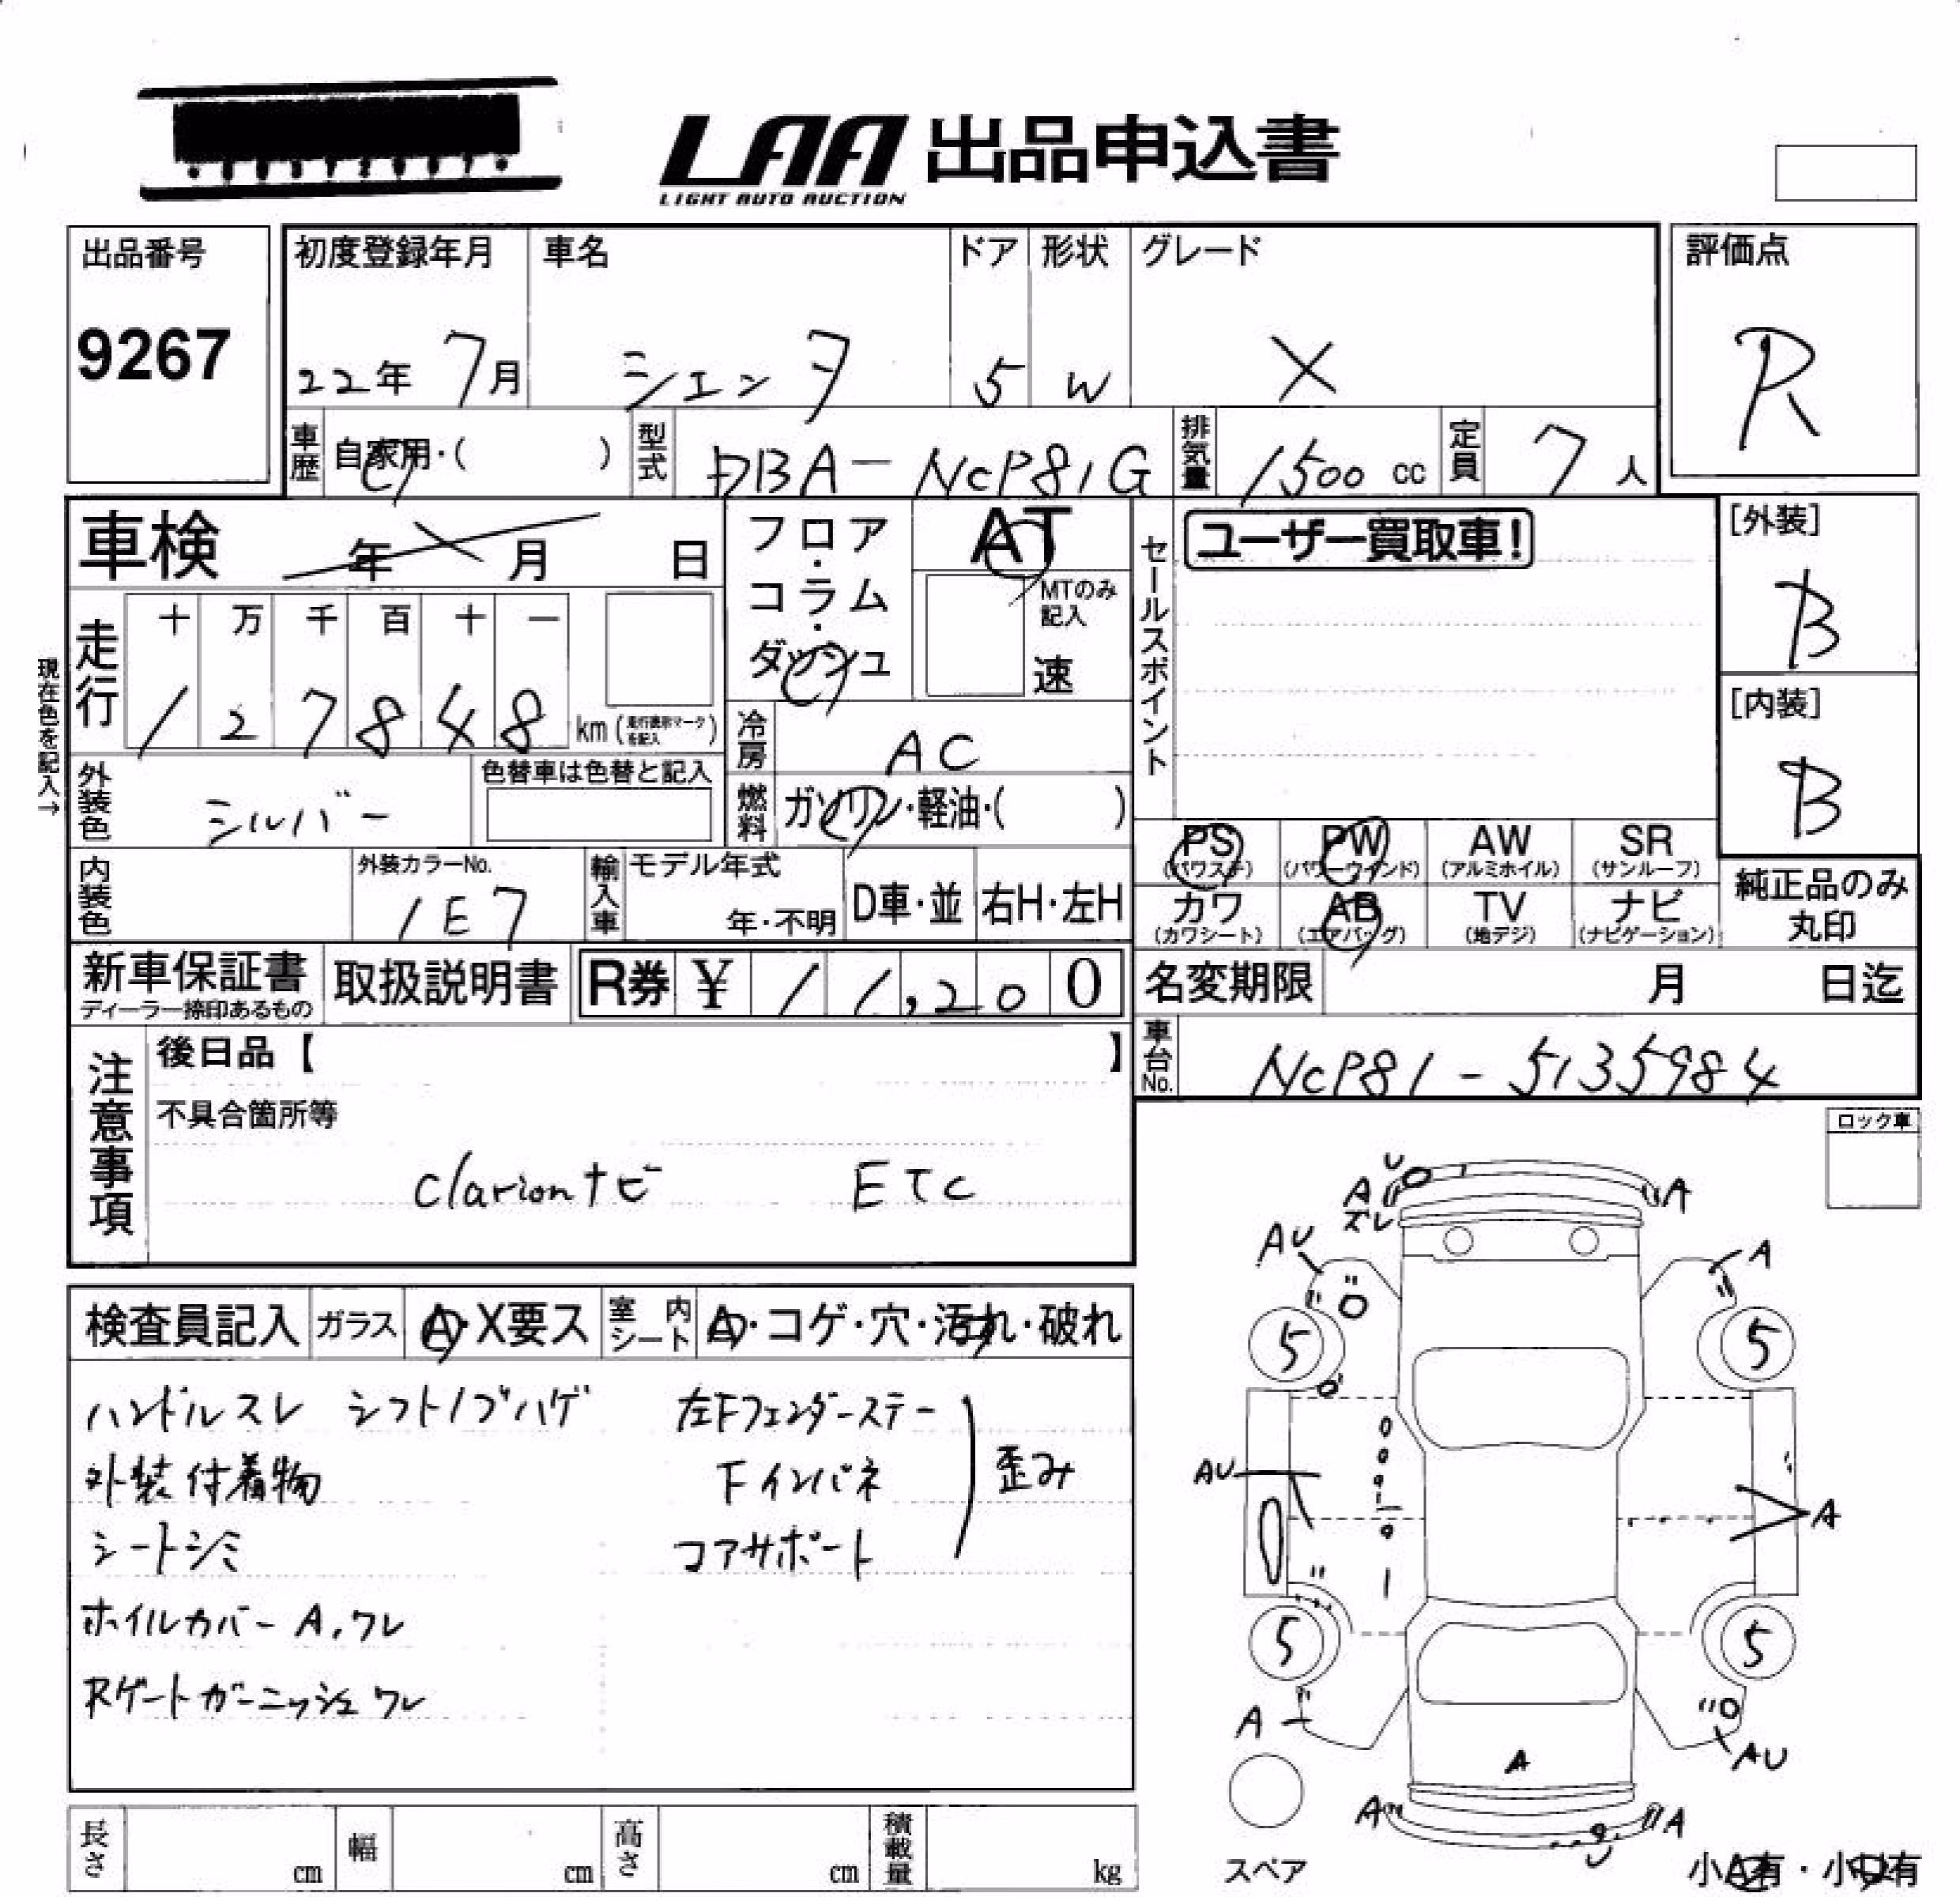 LAA 出品申込書
LIGHT AUTO AUCTION
出品番号
9267
初度登録年月
22年 7月
車名
シエンタ
ドア
5
形状
W
グレード
X
評価点
R
車歴
自家用・( )
型式
DBA-NCP81G
排気量
1500 cc
定員
7 人
車検
年 月 日
フロア・コラム・ダッシュ
AT
MTのみ記入
速
セールスポイント
ユーザー買取車!
[外装]
B
[内装]
B
現在色を記入→
走行
十 万 千 百 十 一
1 2 7 8 4 8
km (走行表示マークを記入)
冷房
AC
外装色
シルバー
色替車は色替と記入
燃料
ガソリン・軽油・( )
PS (パワステ)
PW (パワーウインド)
AW (アルミホイル)
SR (サンルーフ)
カワ (カワシート)
AB (エアバッグ)
TV (地デジ)
ナビ (ナビゲーション)
純正品のみ丸印
内装色
外装カラーNo.
1E7
輸入車
モデル年式
年・不明
D車・並
右H・左H
新車保証書
ディーラー捺印あるもの
取扱説明書
R券 ¥ 11,200
名変期限
月 日迄
車台No.
NCP81-5135984
注意事項
後日品【 】
不具合箇所等
clarionナビ ETC
ロック車
検査員記入
ガラス
A・X要ス
室内シート
A・コゲ・穴・汚れ・破れ
ハンドルスレ シフトノブハゲ
外装付着物
シートシミ
ホイルカバーA,ワレ
Rゲートガーニッシュワレ
左Fフェンダーステー
Fインパネ
コアサポート
歪み
U
A
ズレ
A
AU
A
5
5
AU
A
5
5
A
AU
A
A
A
スペア
小A有・小U有
長さ
cm
幅
cm
高さ
cm
積載量
kg